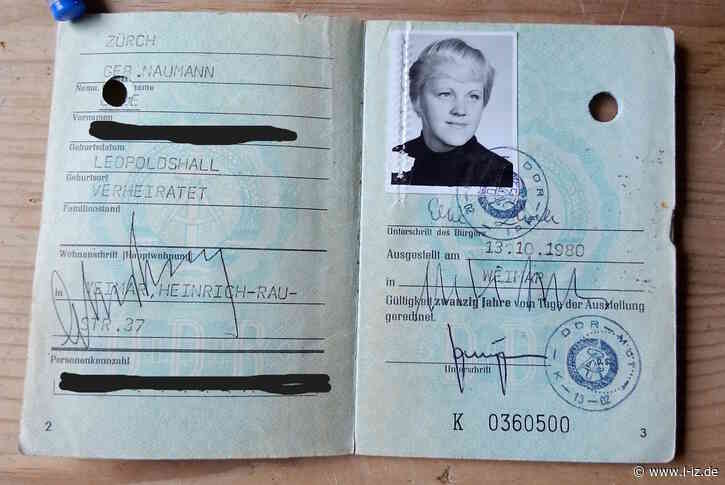 ZÜRCH
GEB. NAUMANN
Name,
Vornamen
Geburtsdatum
LEOPOLDSHALL
Geburtsort
VERHEIRATET
Familienstand
Wohnanschrift (Hauptwohnung)
in WEIMAR HEINRICH-RAU-
STR.37
Personenkennzahl
2
Unterschrift des Bürgers
Ausgestellt am 13.10.1980
in WEIMAR
Gültigkeit zwanzig Jahre vom Tage der Ausstellung
gerechnet.
DDR-MdI
K-13-02
Unterschrift
K 0360500
3
© www.l-iz.de